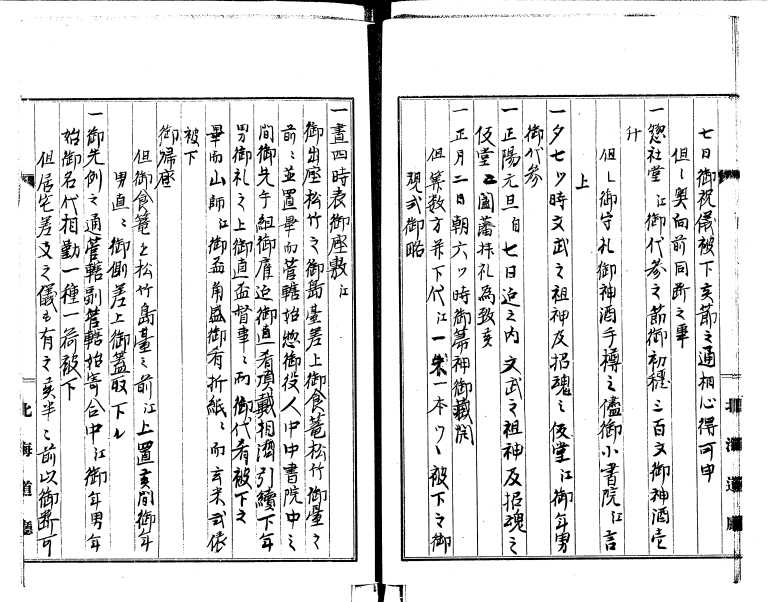 七日御祝儀被下亥節之通相心得可申
但シ奥向前同断之事
一惣社堂江御代参之節御初穂三百文御神酒壱
升
但シ御守札御神酒手樽之儘御小書院江言
上
一夕七ツ時文武之祖神及招魂之仮堂江御年男
御代参
一正陽元旦ヨリ七日迄之内文武之祖神及招魂之
仮堂江國藩拝礼為致亥
一正月二日朝六ツ時御幕神御蔵開
但算数方并下代江一朱一本ツヽ被下之御
現弐御略
一昼四時表御座敷江
御出座松竹之御島臺差上御食篭松竹御臺之
前ニ並置畢而管轄始惣御役人中中書院中之
間御先手組御廣迄御直肴頂戴相済引續下年
男御礼之上御直盃督事ニ而御代肴被下之
畢而山師江御盃角盛御肴折紙ニ而玄米弐俵
被下
御帰座
但御食篭と松竹島臺之前江上置亥間御年
男直ニ御側差上御蓋取下ル
一御先例之通管轄副管轄始寄合中江御年男年
始御名代相勤一種一荷被下
但居宅差支之儀も有之亥半之前以御断可
北海道廳
北海道廳